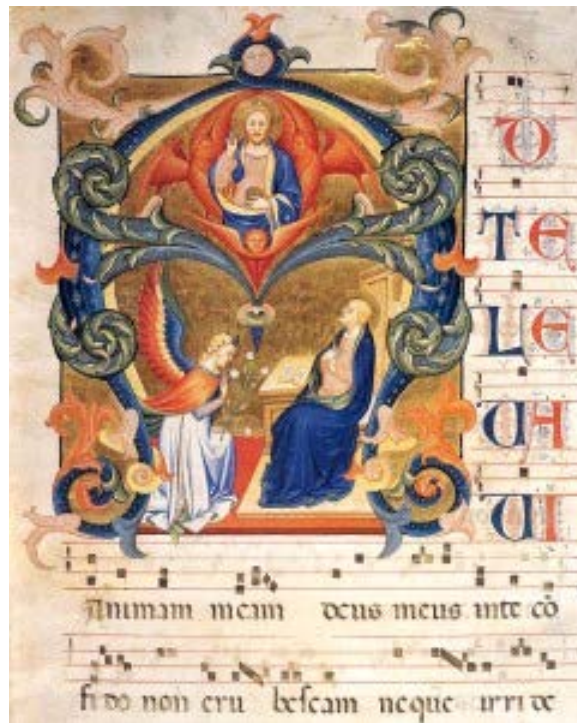 AD
TE
LE
UA
UI
Animam meam deus meus inte cō
fido non eru bescam neque irri de